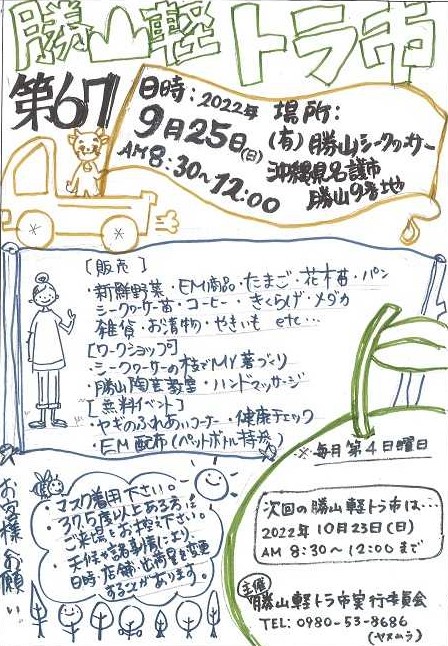 勝山軽トラ市
第67
日時：2022年
9月25日(日)
AM8:30〜12:00
場所：
(有)勝山シークヮーサー
沖縄県名護市
勝山9番地
[販売]
・新鮮野菜・EM商品・たまご・花木苗・パン
シークヮーサー苗・コーヒー・きくらげ・メダカ
雑貨・お漬物・やきいも etc…
[ワークショップ]
・シークヮーサーの枝でMY箸づくり
・勝山陶芸教室・ハンドマッサージ
[無料イベント]
・ヤギのふれあいコーナー・健康チェック
・EM配布(ペットボトル持参)
※毎月第4日曜日
お客様お願い
・マスク着用下さい。
・37.5度以上ある方は
ご来場をお控え下さい。
・天候や諸事情により
日時・店舗・出荷量を変更
する事があります。
次回の勝山軽トラ市は…
2022年10月23日(日)
AM 8:30〜12:00まで
主催
勝山軽トラ市実行委員会
TEL: 0980-53-8686
(ヤスムラ)